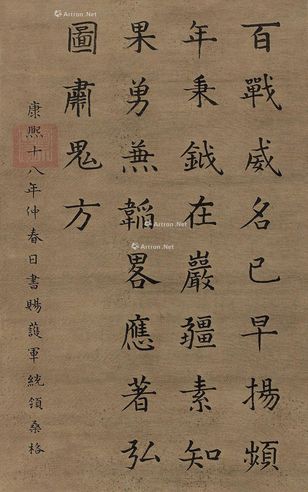 百戰威名已早揚頻
年秉鉞在巖疆素知
果勇兼韜畧應著弘
圖肅鬼方
康熙十八年仲春日書賜護軍統領桑格
Artron.Net
Artron.Net
Artron.Net